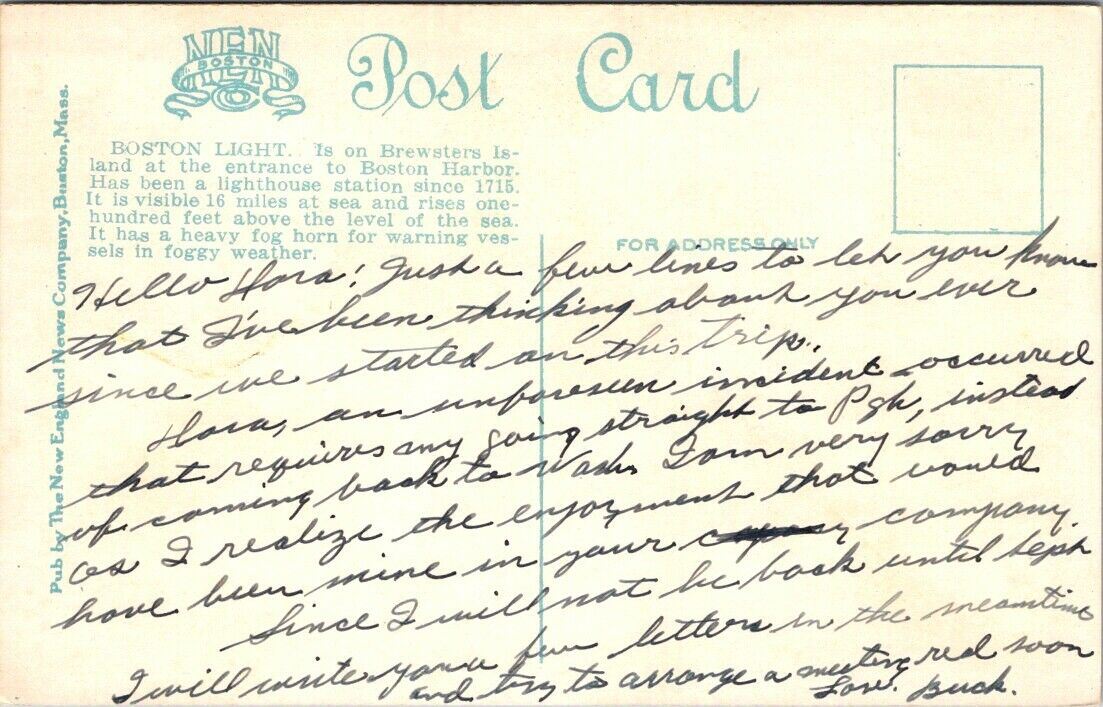 NEN
BOSTON
Co
Post Card
Pub by The New England News Company, Boston, Mass.
BOSTON LIGHT. Is on Brewsters Is-
land at the entrance to Boston Harbor.
Has been a lighthouse station since 1715.
It is visible 16 miles at sea and rises one-
hundred feet above the level of the sea.
It has a heavy fog horn for warning ves-
sels in foggy weather.
FOR ADDRESS ONLY
Hello Nora! Just a few lines to let you know
that I've been thinking about you ever
since we started on this trip.
Nora, an unforeseen incident occurred
that requires my going straight to Pgh, instead
of coming back to Wash. I am very sorry
as I realize the enjoyment that would
have been mine in your company.
Since I will not be back until Sept
I will write you a few letters in the meantime
and try to arrange a meeting real soon
Love. Buck.